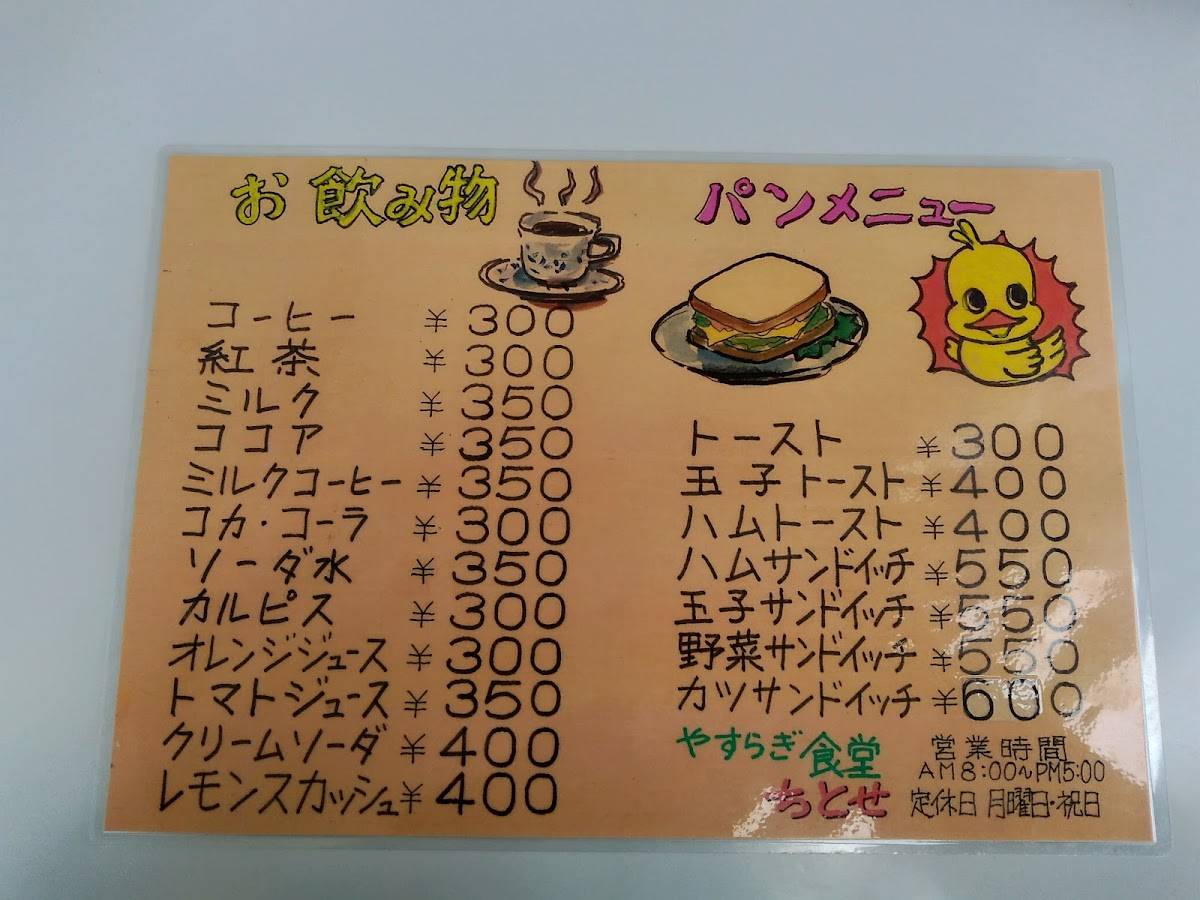 お飲み物
コーヒー ¥300
紅茶 ¥300
ミルク ¥350
ココア ¥350
ミルクコーヒー ¥350
コカ・コーラ ¥300
ソーダ水 ¥350
カルピス ¥300
オレンジジュース ¥300
トマトジュース ¥350
クリームソーダ ¥400
レモンスカッシュ ¥400
パンメニュー
トースト ¥300
玉子トースト ¥400
ハムトースト ¥400
ハムサンドイッチ ¥550
玉子サンドイッチ ¥550
野菜サンドイッチ ¥550
カツサンドイッチ ¥600
やすらぎ食堂
ちとせ
営業時間
AM8:00~PM5:00
定休日 月曜日・祝日